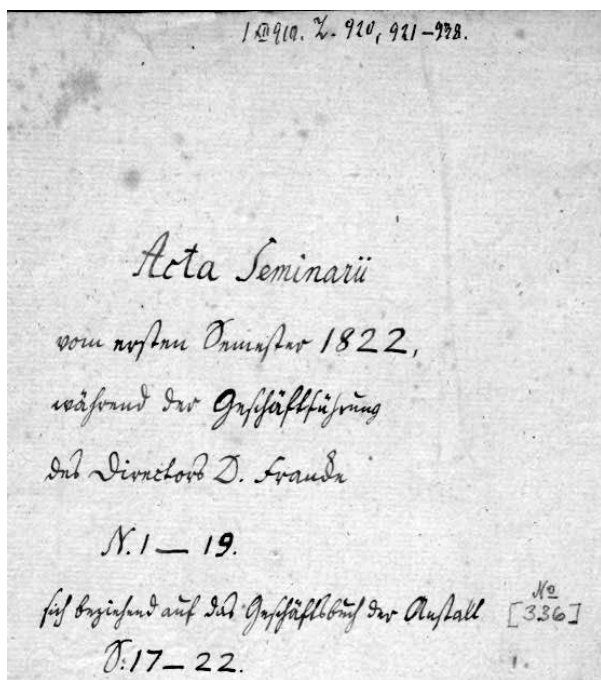 1 XII 910. Z. 920, 921–938.
Acta Seminarii
vom ersten Semester 1822,
während der Geschäftführung
des Directors D. Francke
N. 1 — 19.
sich beziehend auf das Geschäftsbuch der Anstalt
No
[336]
S: 17 — 22.
1.